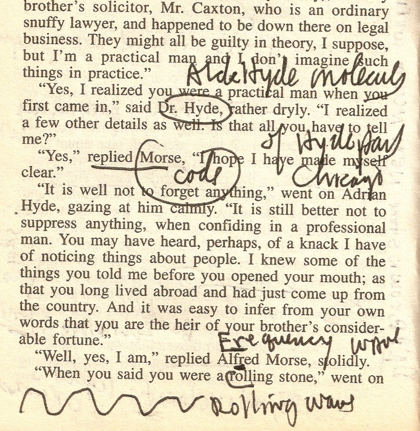 brother's solicitor, Mr. Caxton, who is an ordinary
snuffy lawyer, and happened to be down there on legal
business. They might all be guilty in theory, I suppose,
but I'm a practical man and I don't imagine such
things in practice."
AldeHyde molecule
"Yes, I realized you were a practical man when you
first came in," said Dr. Hyde, rather dryly. "I realized
a few other details as well. Is that all you have to tell
me?"
of Hyde park
"Yes," replied Morse, "I hope I have made myself
clear."
code
Chicago
"It is well not to forget anything," went on Adrian
Hyde, gazing at him calmly. "It is still better not to
suppress anything, when confiding in a professional
man. You may have heard, perhaps, of a knack I have
of noticing things about people. I knew some of the
things you told me before you opened your mouth; as
that you long lived abroad and had just come up from
the country. And it was easy to infer from your own
words that you are the heir of your brother's consider-
able fortune."
Frequency wave
"Well, yes, I am," replied Alfred Morse, stolidly.
"When you said you were a rolling stone," went on
Rolling wave